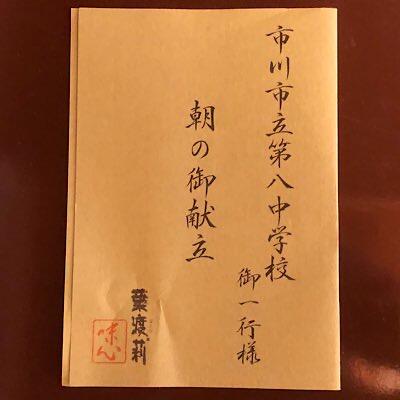 市川市立第八中学校
御一行様
朝の御献立
葉渡莉
味心